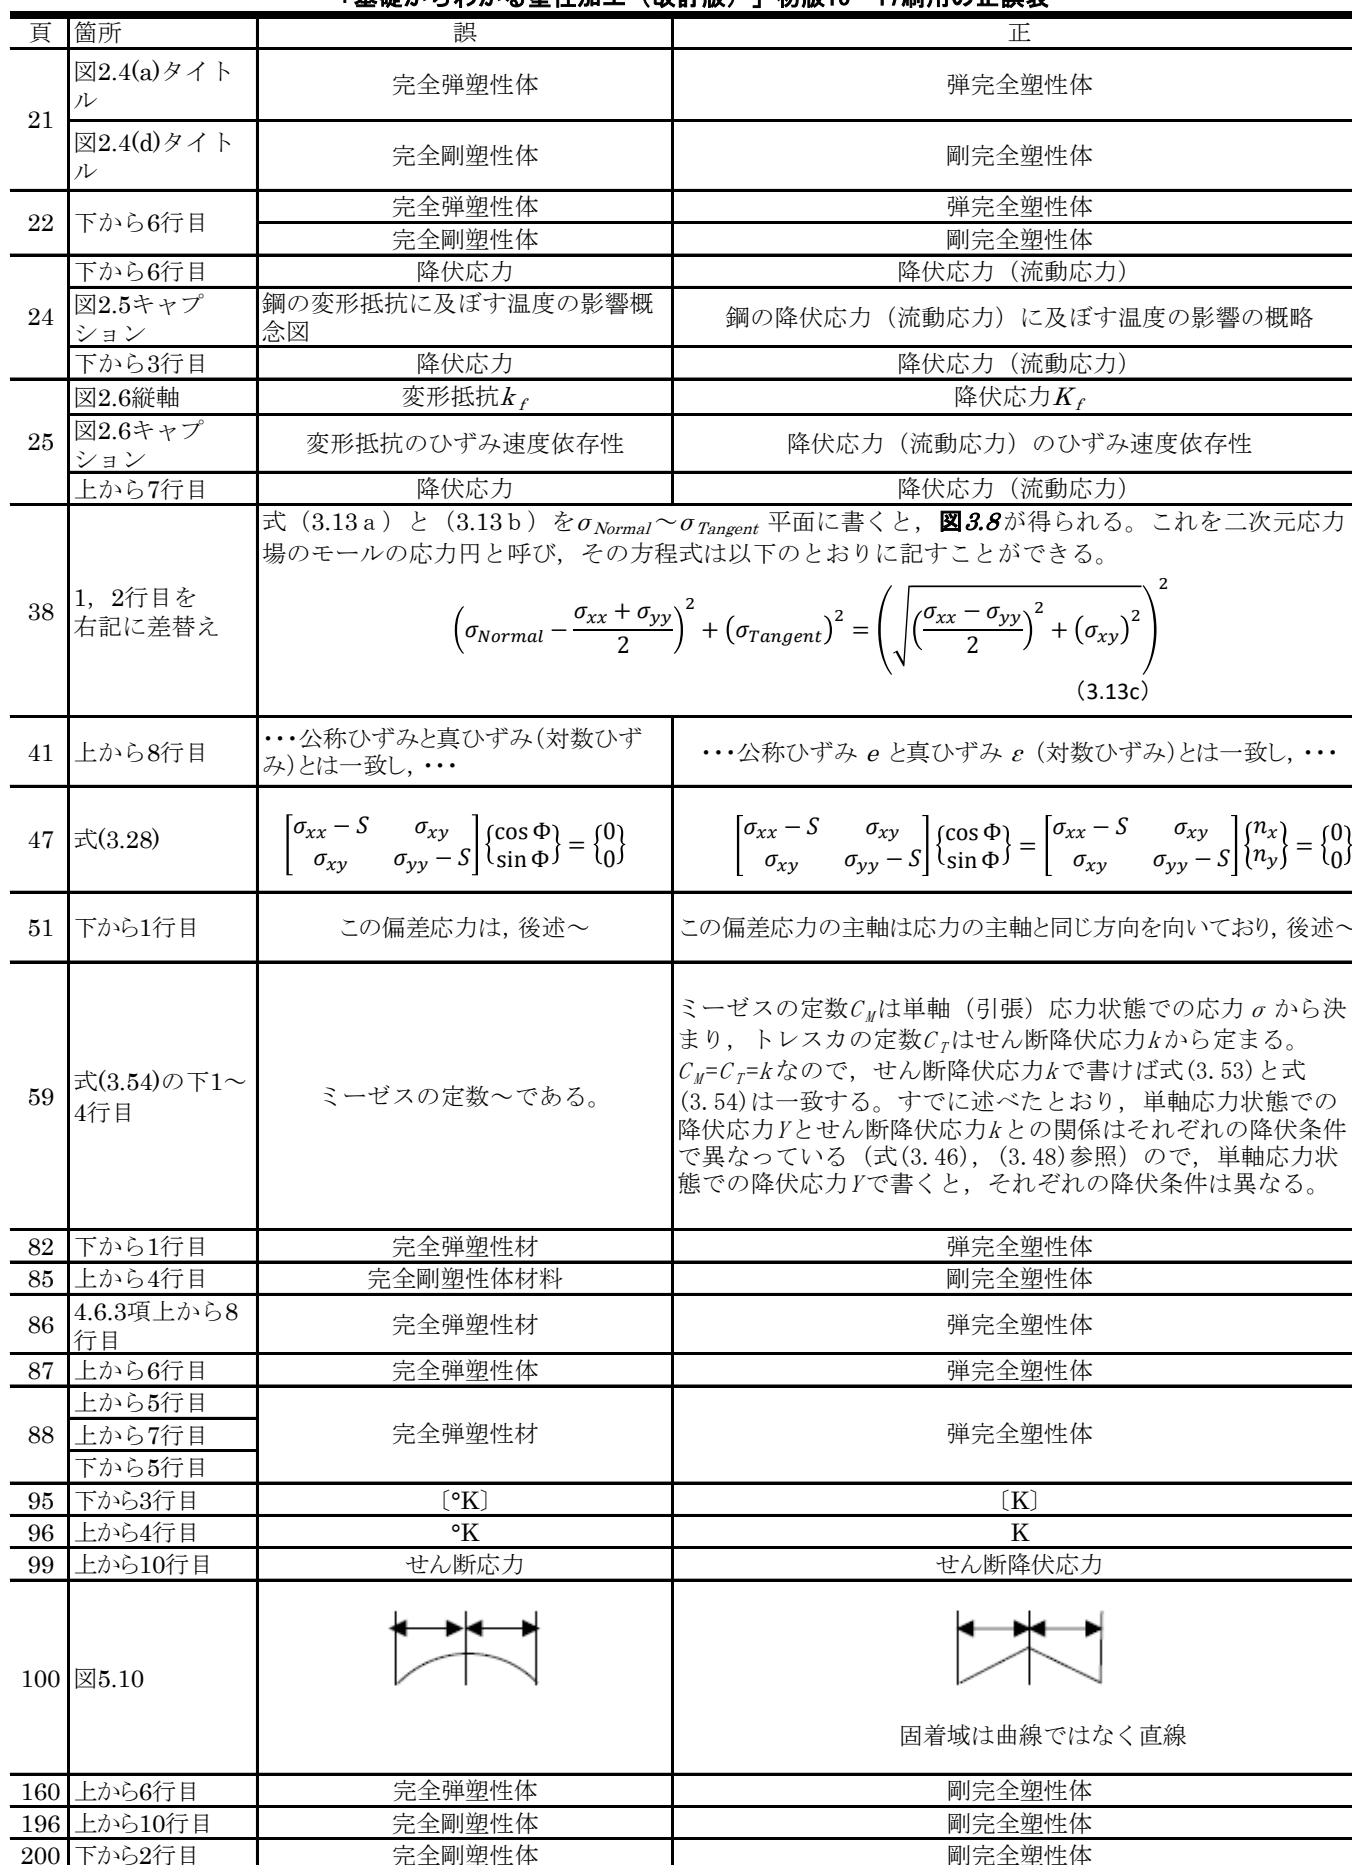 頁 箇所 誤 正
21 図2.4(a)タイト
ル 完全弾塑性体 弾完全塑性体
図2.4(d)タイト
ル 完全剛塑性体 剛完全塑性体
22 下から6行目 完全弾塑性体 弾完全塑性体
完全剛塑性体 剛完全塑性体
24 下から6行目 降伏応力 降伏応力（流動応力）
図2.5キャプ
ション 鋼の変形抵抗に及ぼす温度の影響概
念図 鋼の降伏応力（流動応力）に及ぼす温度の影響の概略
下から3行目 降伏応力 降伏応力（流動応力）
25 図2.6縦軸 変形抵抗k_f 降伏応力K_f
図2.6キャプ
ション 変形抵抗のひずみ速度依存性 降伏応力（流動応力）のひずみ速度依存性
上から7行目 降伏応力 降伏応力（流動応力）
38 1，2行目を
右記に差替え
式（3.13a）と（3.13b）をσ_Normal～σ_Tangent 平面に書くと，図3.8が得られる。これを二次元応力
場のモールの応力円と呼び，その方程式は以下のとおりに記すことができる。
(σ_Normal − (σ_xx + σ_yy)/2)^2 + (σ_Tangent)^2 = (√(((σ_xx − σ_yy)/2)^2 + (σ_xy)^2))^2
（3.13c）
41 上から8行目 ・・・公称ひずみと真ひずみ（対数ひず
み）とは一致し，・・・ ・・・公称ひずみ e と真ひずみ ε（対数ひずみ）とは一致し，・・・
47 式(3.28) [σ_xx − S σ_xy
σ_xy σ_yy − S]{cos Φ
sin Φ} = {0
0} [σ_xx − S σ_xy
σ_xy σ_yy − S]{cos Φ
sin Φ} = [σ_xx − S σ_xy
σ_xy σ_yy − S]{n_x
n_y} = {0
0}
51 下から1行目 この偏差応力は，後述～ この偏差応力の主軸は応力の主軸と同じ方向を向いており，後述～
59 式(3.54)の下1～
4行目 ミーゼスの定数～である。
ミーゼスの定数C_Mは単軸（引張）応力状態での応力 σ から決
まり，トレスカの定数C_Tはせん断降伏応力kから定まる。
C_M=C_T=kなので，せん断降伏応力kで書けば式(3.53)と式
(3.54)は一致する。すでに述べたとおり，単軸応力状態での
降伏応力Yとせん断降伏応力kとの関係はそれぞれの降伏条件
で異なっている（式(3.46)，(3.48)参照）ので，単軸応力状
態での降伏応力Yで書くと，それぞれの降伏条件は異なる。
82 下から1行目 完全弾塑性材 弾完全塑性体
85 上から4行目 完全剛塑性体材料 剛完全塑性体
86 4.6.3項上から8
行目 完全弾塑性材 弾完全塑性体
87 上から6行目 完全弾塑性体 弾完全塑性体
88 上から5行目
上から7行目 完全弾塑性材 弾完全塑性体
下から5行目
95 下から3行目 〔°K〕 〔K〕
96 上から4行目 °K K
99 上から10行目 せん断応力 せん断降伏応力
100 図5.10
固着域は曲線ではなく直線
160 上から6行目 完全弾塑性体 剛完全塑性体
196 上から10行目 完全剛塑性体 剛完全塑性体
200 下から2行目 完全剛塑性体 剛完全塑性体